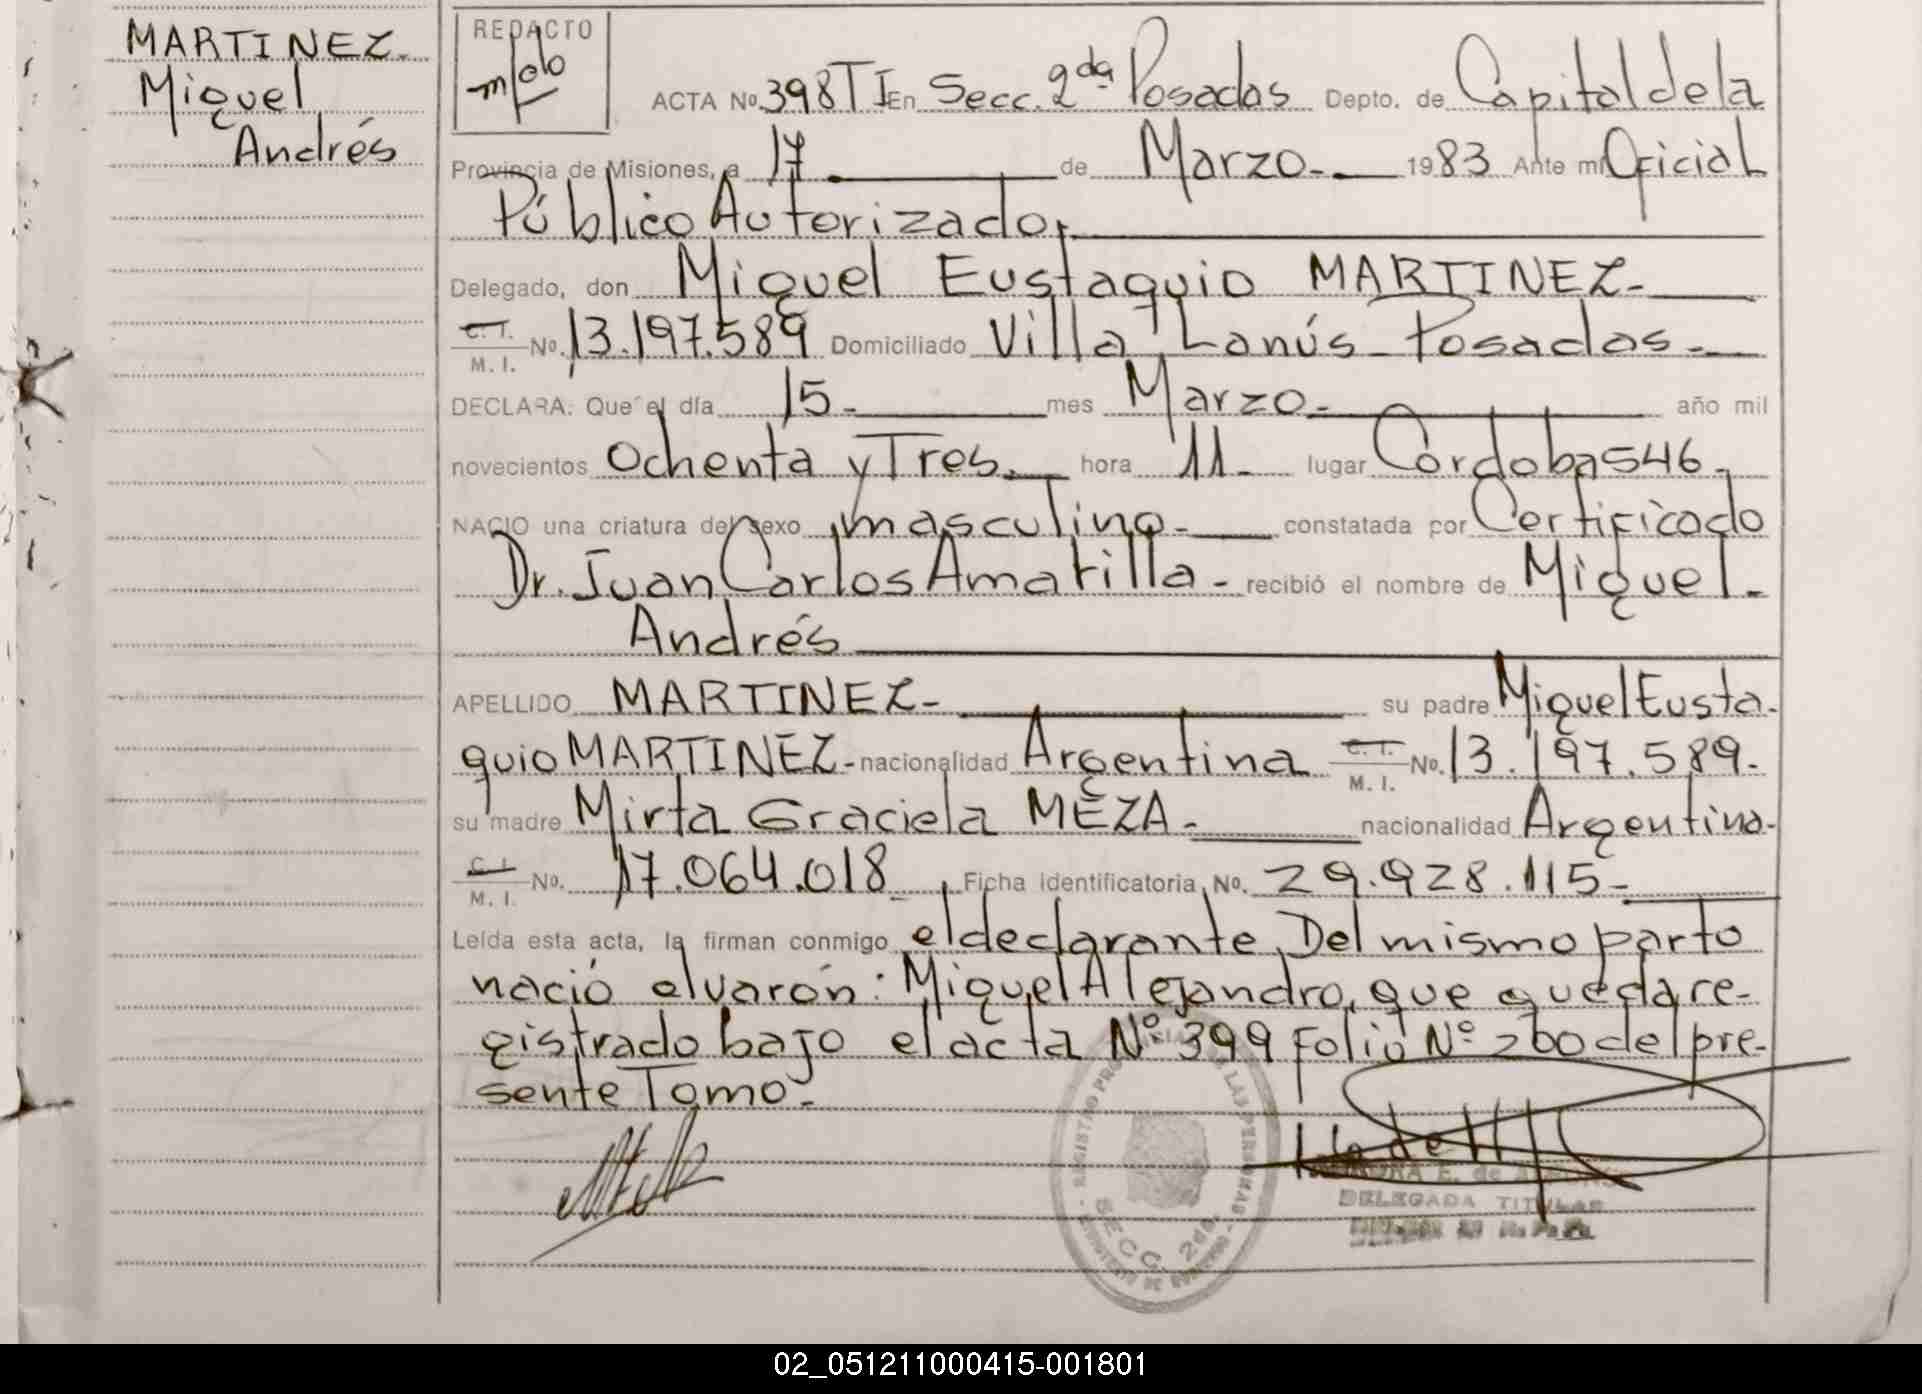 MARTINEZ-
Miguel
Andrés
REDACTO
ACTA No. 398 T I En Secc. 2da Posadas Depto. de Capital de la
Provincia de Misiones, a 17 de Marzo.- 1983 Ante mi Oficial
Público Autorizado,
Delegado, don Miguel Eustaquio MARTINEZ-
C. I.
M. I. No. 13.197.589 Domiciliado Villa Lanús - Posadas.-
DECLARA: Que el día 15- mes Marzo.- año mil
novecientos ochenta y Tres.- hora 11- lugar Córdoba 546.-
NACIO una criatura del sexo masculino- constatada por Certificado
Dr. Juan Carlos Amarilla- recibió el nombre de Miguel-
Andrés
APELLIDO MARTINEZ- su padre Miguel Eusta-
quio MARTINEZ- nacionalidad Argentina C. I.
M. I. No. 13.197.589-
su madre Mirta Graciela MEZA- nacionalidad Argentina-
C. I.
M. I. No. 17.064.018, Ficha identificatoria No. 29.928.115-
Leída esta acta, la firman conmigo el declarante, Del mismo parto
nació el varón: Miguel Alejandro, que queda re-
gistrado bajo el acta Nº 399 Folio Nº 200 del pre-
sente Tomo.-
REGISTRO DE LAS PERSONAS
SECC. 2da.
MINISTERIO DE GOBIERNO
DELEGADA TITULAR
02_051211000415-001801